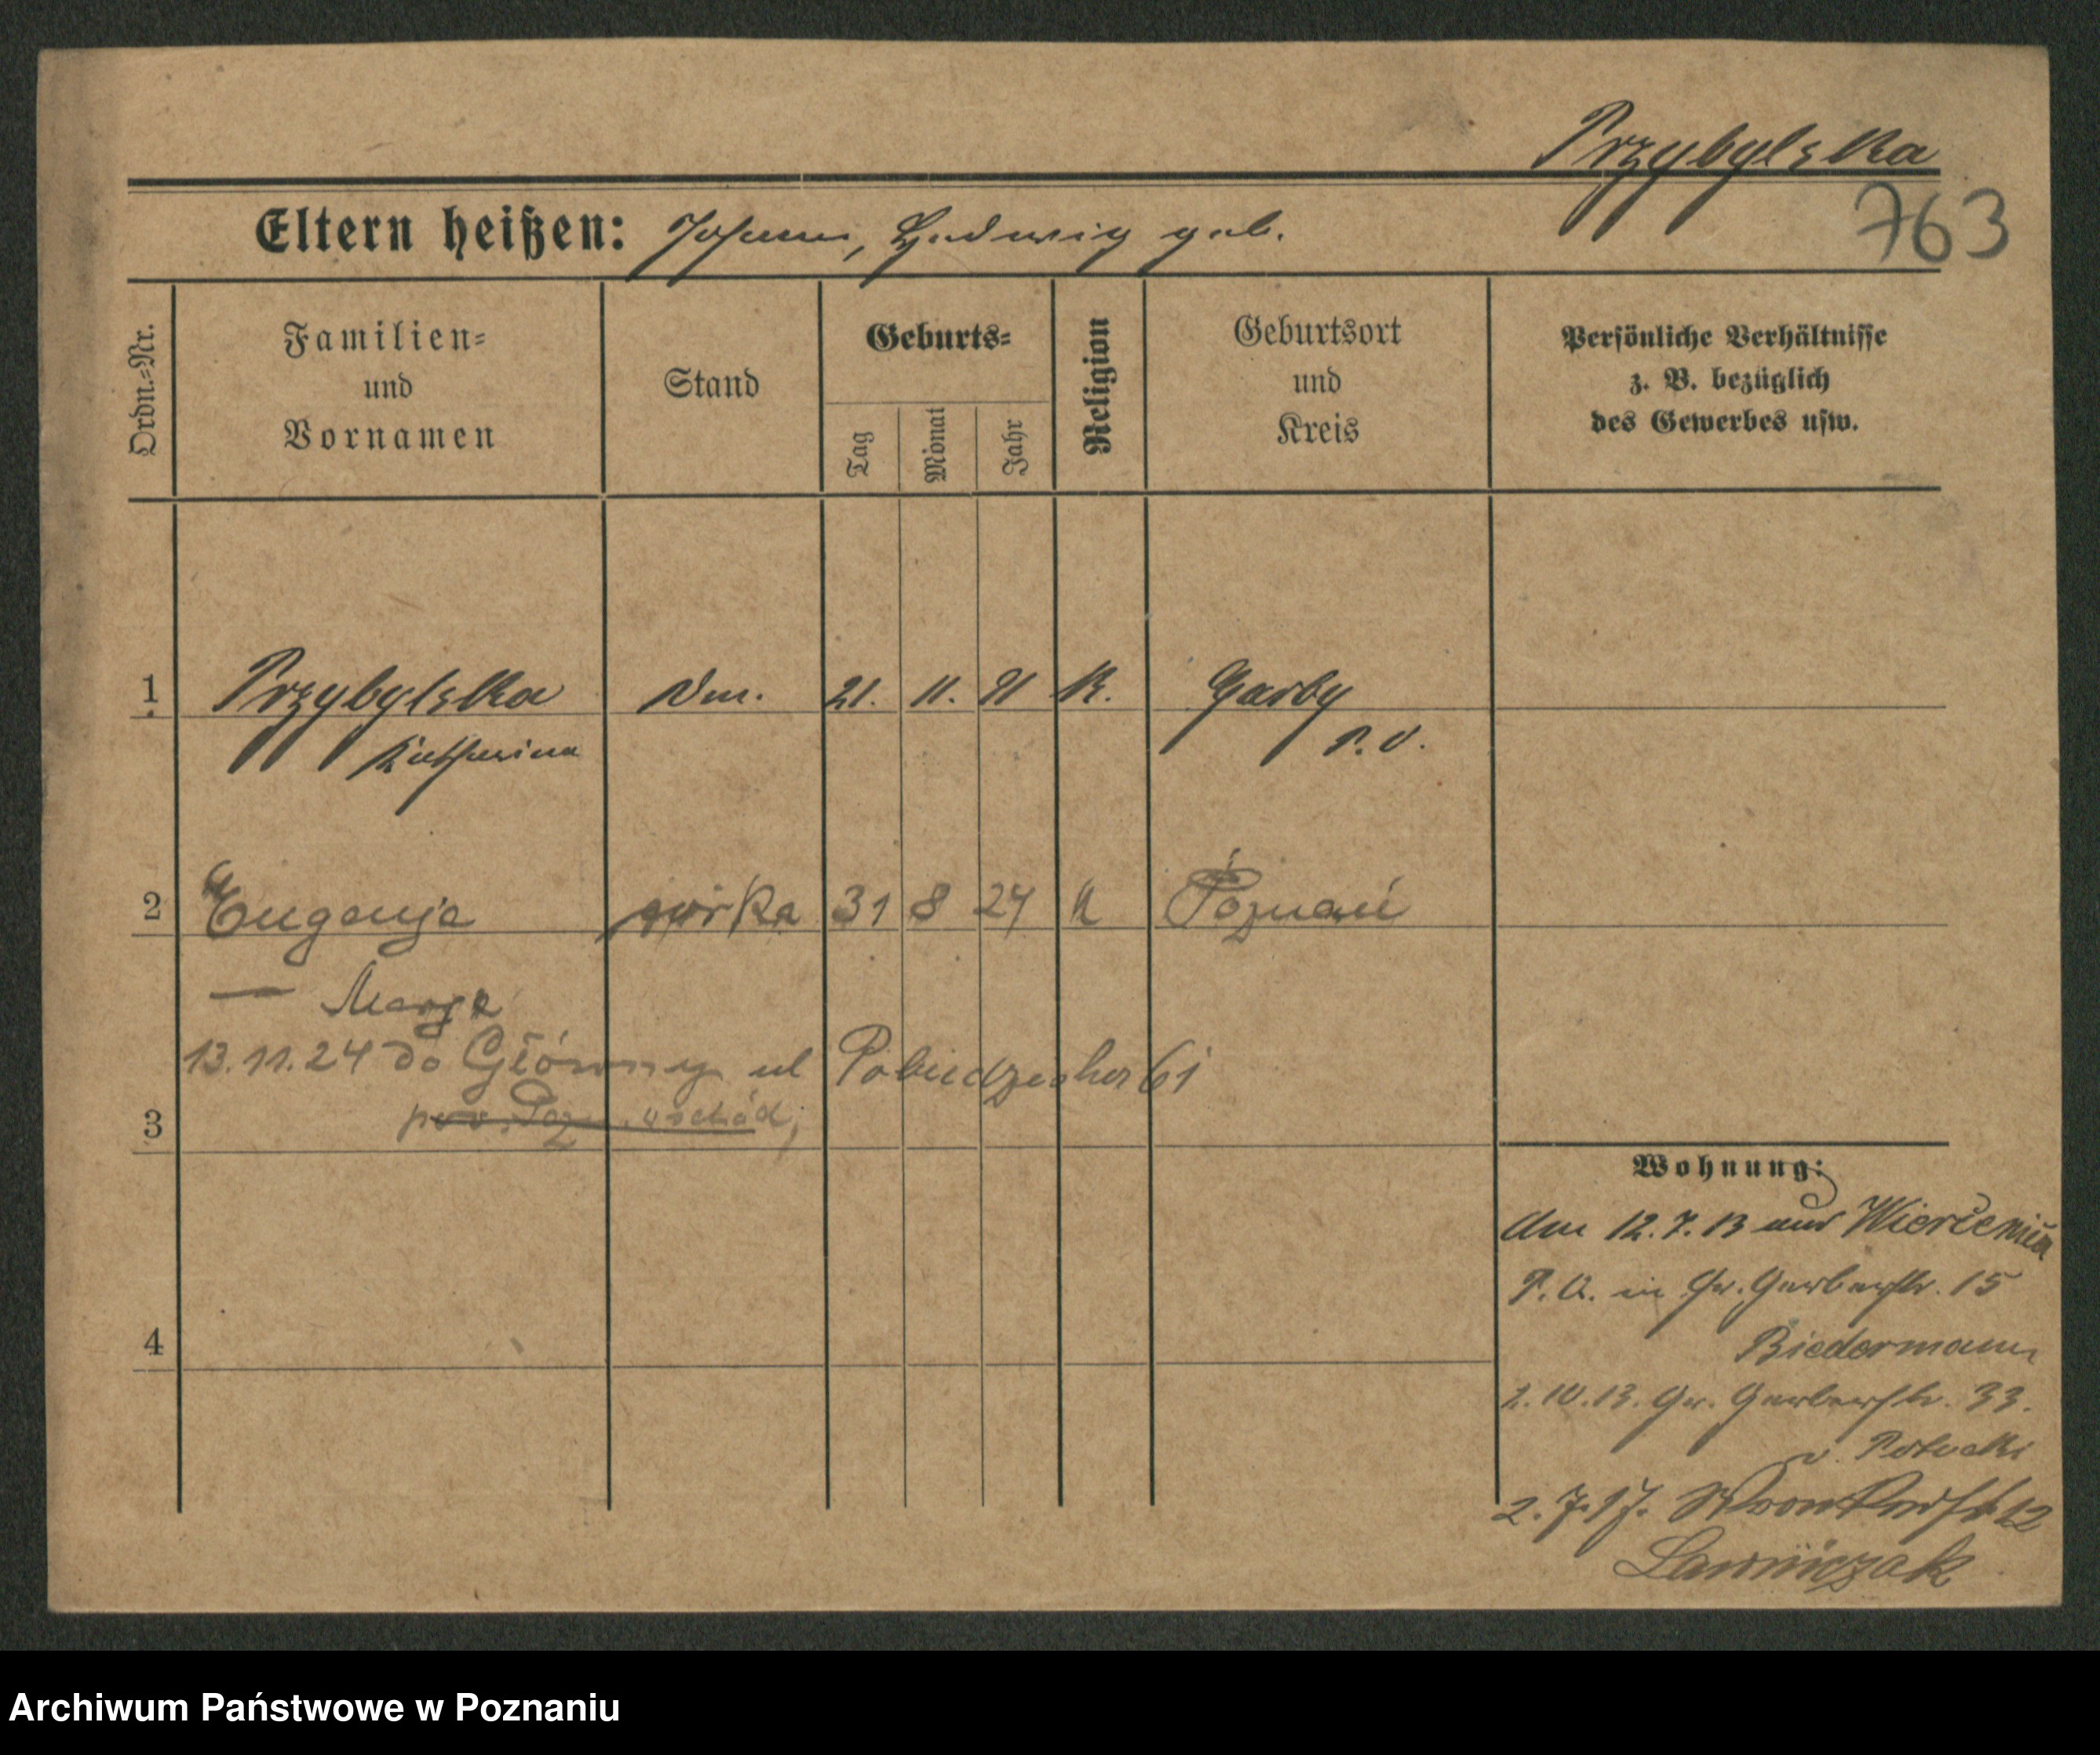 Przybylska
763
Eltern heißen: Johann, Hedwig geb.
Ordn.-Nr.
Familien-
und
Vornamen
Stand
Geburts-
Tag
Monat
Jahr
Religion
Geburtsort
und
Kreis
Persönliche Verhältnisse
z. B. bezüglich
des Gewerbes usw.
1 Przybylska 21. 11. 91 K. Garby
Katharina P. O.
2 Eugenja córka 31 8 24 K Poznań
— Marja
13.11.24 do Główny ul Pobiedziska 61
pow. Pozn. wschód,
3
Wohnung:
Am 12.7.13 aus Wierzenica
P. O. in Gr. Gerberstr. 15
Biedermann
1.10.13. Gr. Gerberstr. 33.
v. Potocki
2.7.17. Wronkerstr 12
Lawniczak
4
Archiwum Państwowe w Poznaniu